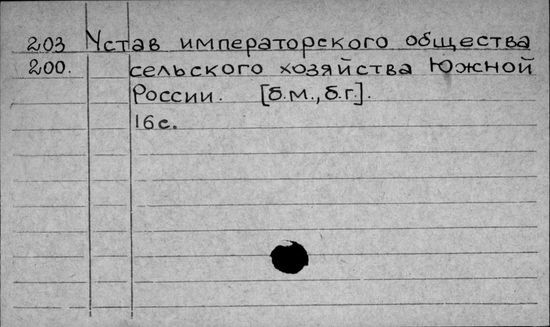 203 Устав императорского общества
200. сельского хозяйства Южной
России. [б.м.,б.г.].
16с.